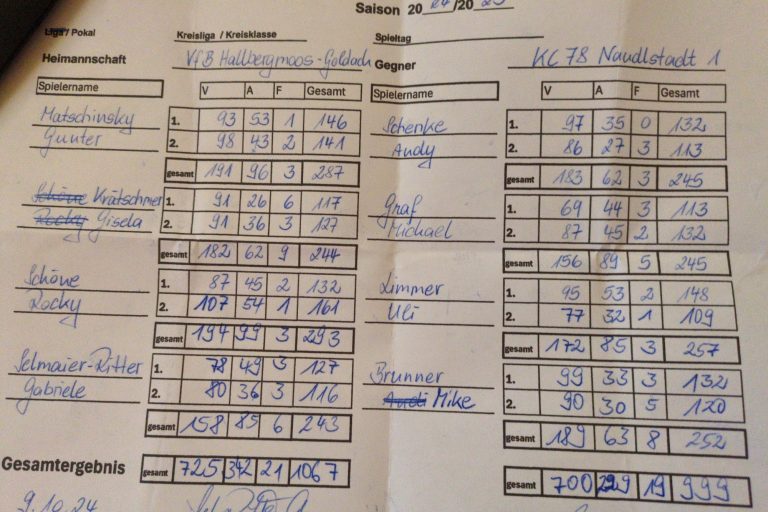 Saison 20 24 / 20 25
Liga / Pokal Kreisliga / Kreisklasse Spieltag
Heimannschaft VfB Hallbergmoos-Goldach Gegner KC 78 Naudlstadt 1
Spielername V A F Gesamt Spielername V A F Gesamt
Matschinsky 1. 93 53 1 146 Schenke 1. 97 35 0 132
Gunter 2. 98 43 2 141 Andy 2. 86 27 3 113
gesamt 191 96 3 287 gesamt 183 62 3 245
Schöne Krätschmer 1. 91 26 6 117 Graf 1. 69 44 3 113
Rocky Gisela 2. 91 36 3 127 Michael 2. 87 45 2 132
gesamt 182 62 9 244 gesamt 156 89 5 245
Schöne 1. 87 45 2 132 Limmer 1. 95 53 2 148
Rocky 2. 107 54 1 161 Uli 2. 77 32 1 109
gesamt 194 99 3 293 gesamt 172 85 3 257
Selmaier-Ritter 1. 78 49 3 127 Brunner 1. 99 33 3 132
Gabriele 2. 80 36 3 116 Andi Mike 2. 90 30 5 120
gesamt 158 85 6 243 gesamt 189 63 8 252
Gesamtergebnis gesamt 725 342 21 1067 gesamt 700 299 19 999
9.10.24